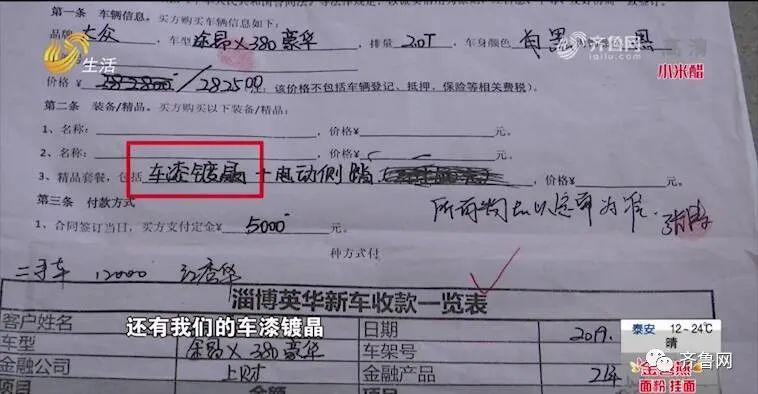 第一条 车辆信息。买方购买车辆信息如下：
品牌 大众 ，车型 途昂X380豪华 ，排量 2.0T ，车身颜色
生活
齐鲁网
iqilu.com
高清
小米醋
价格 ¥ 282800 / 282500 元，该价格不包括车辆登记、抵押，保险等相关费税）。
第二条 装备/精品。买方购买以下装备/精品：
1、名称： ，价格¥ 元。
2、名称： ，价格¥ 元。
3、精品套餐，包括 车漆镀晶 + 电动侧踏 ，价格¥ 元。
第三条 付款方式
1、合同签订当日，买方支付定金¥ 5000 元。
种方式付
二手车 12000
淄博英华新车收款一览表
客户姓名 日期 2019.
车型 途昂X 380豪华 车架号
金融公司 上财 金融产品
项目 金额
还有我们的车漆镀晶
泰安 12~24℃
晴
面粉 挂面
齐鲁网